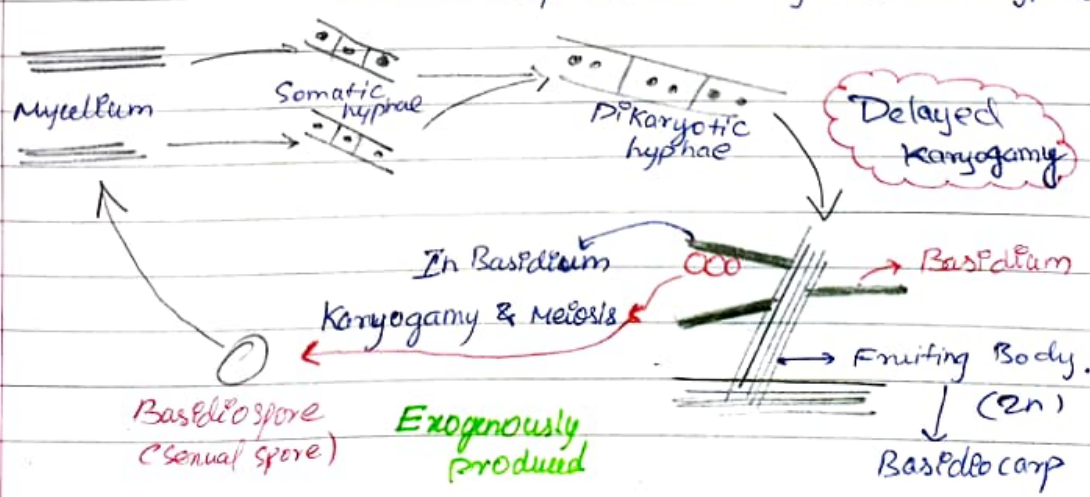 Mycelium
Somatic
hyphae
Dikaryotic
hyphae
Delayed
Karyogamy
In Basidium
Basidium
Karyogamy & Meiosis
Fruiting Body.
(2n)
Basidiocarp
Basidiospore
(sexual spore)
Exogenously
produced